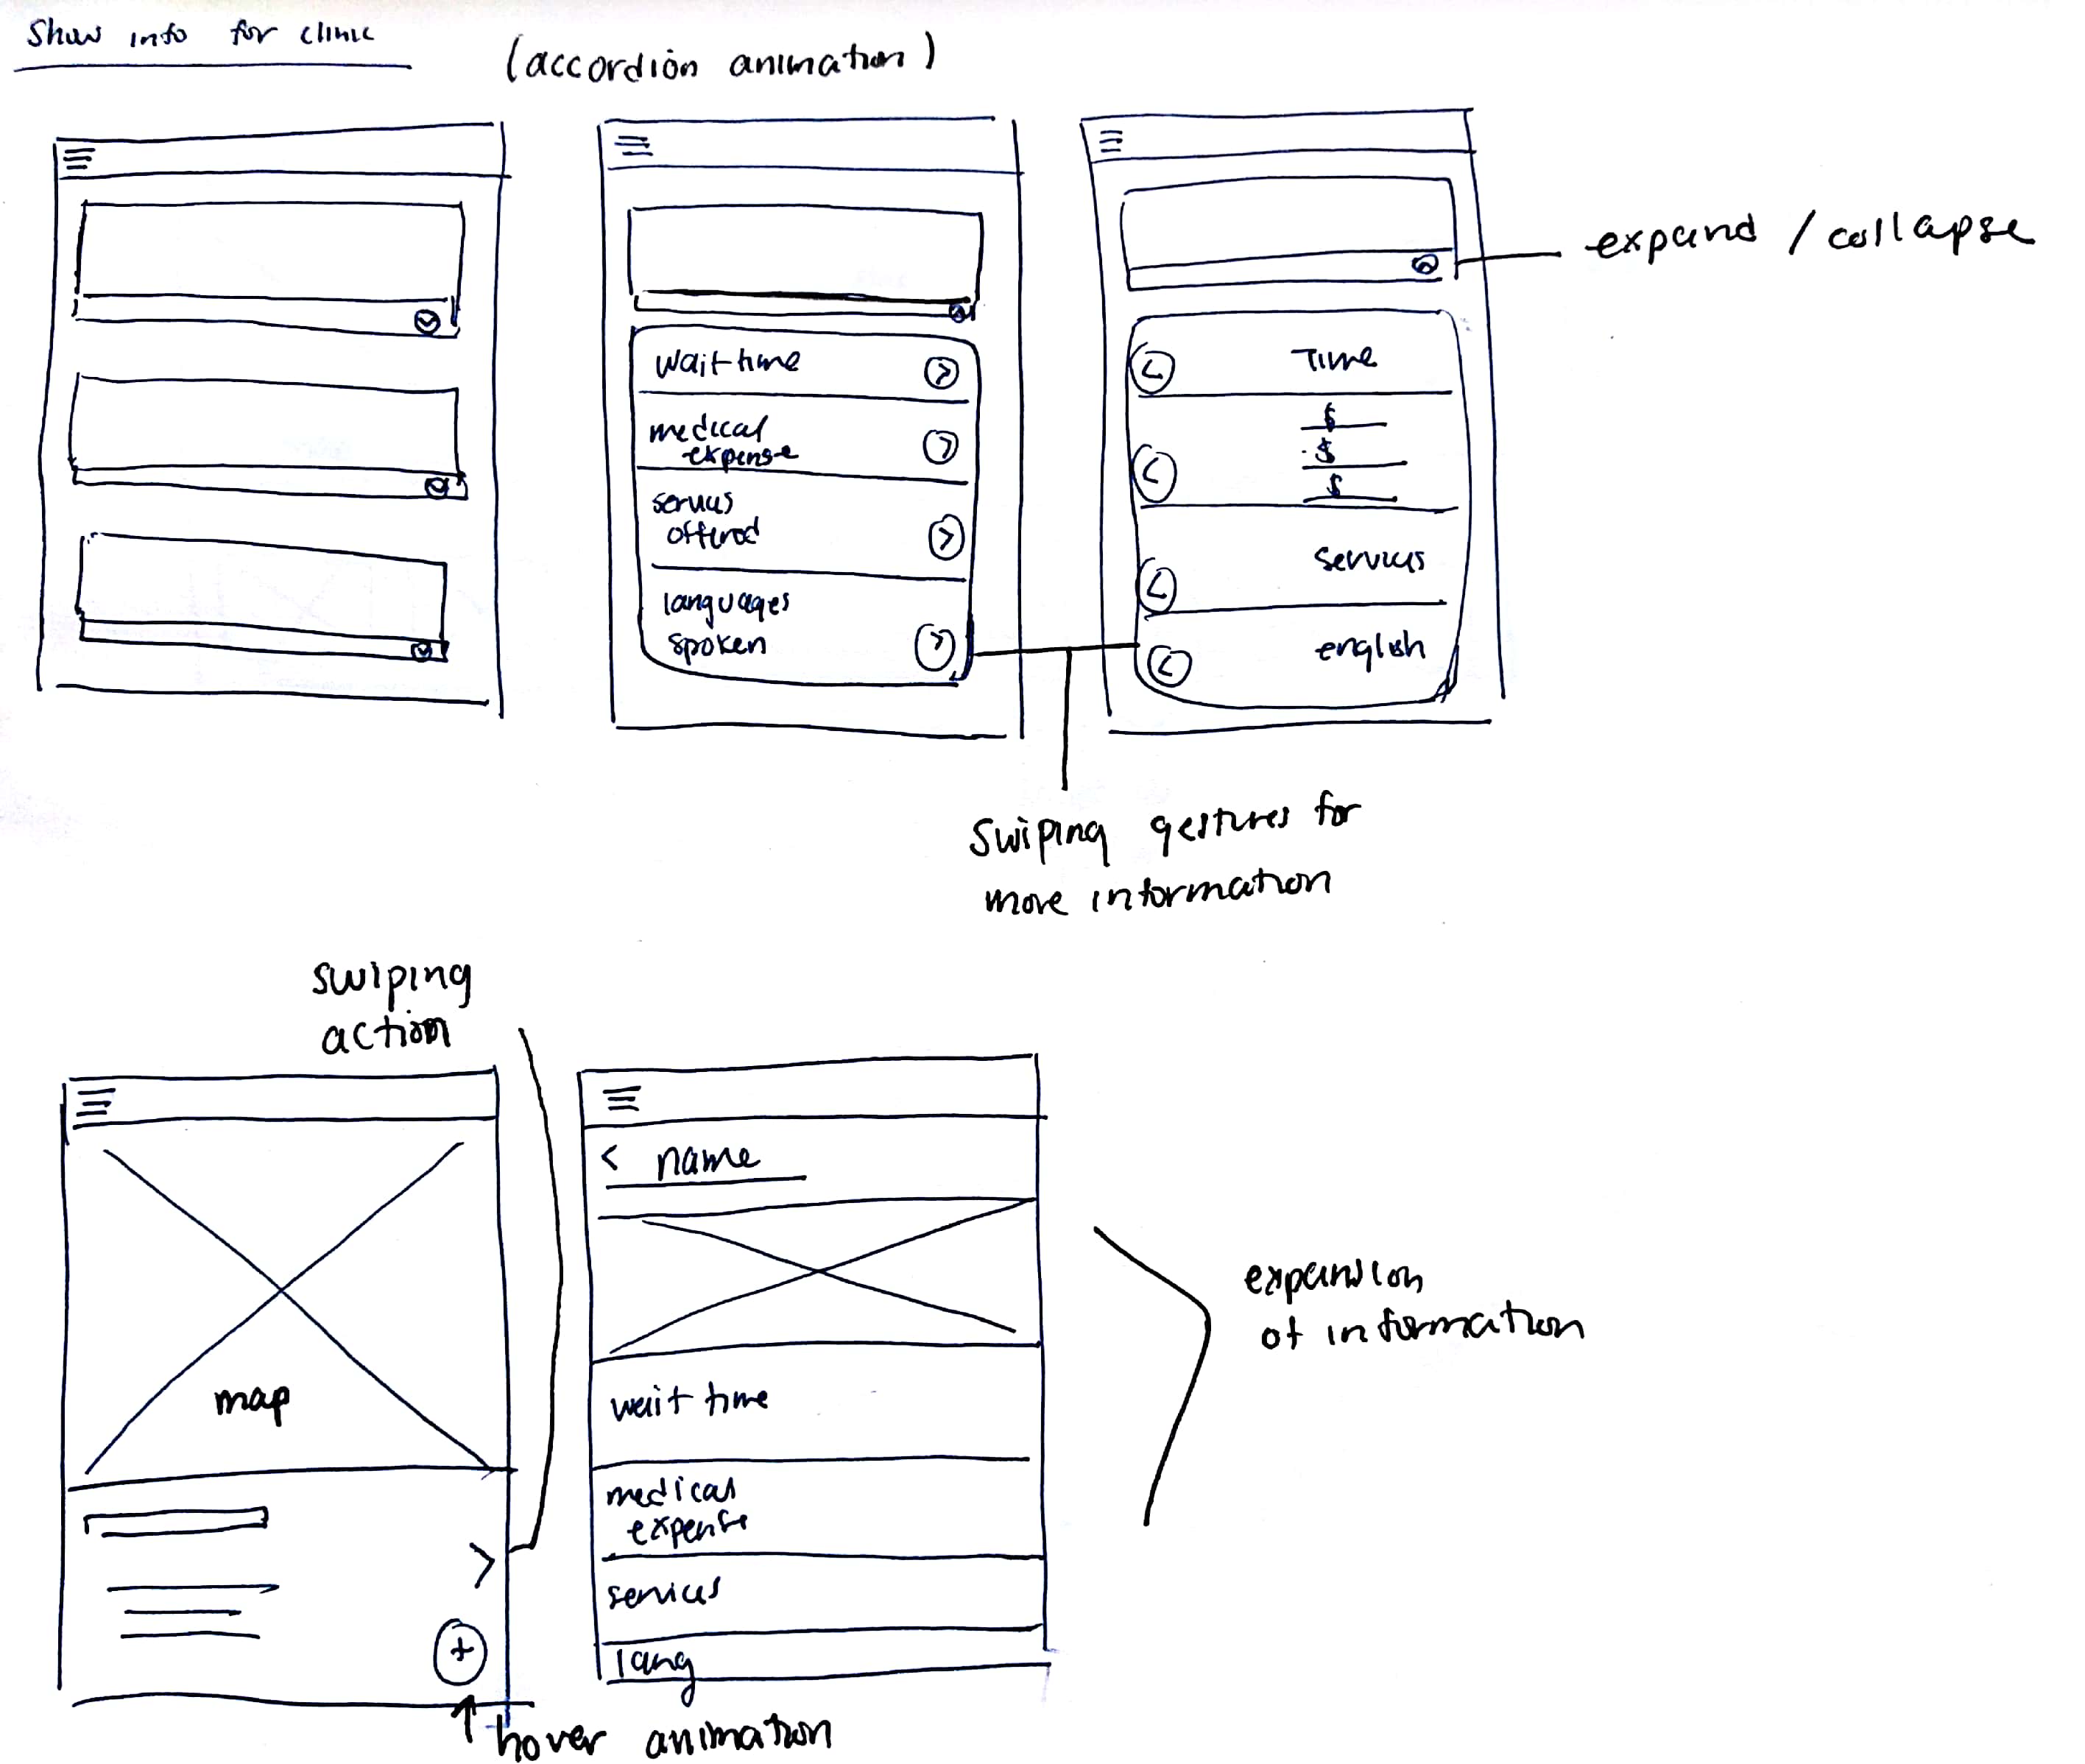 Show info for clinic
(accordion animation)
wait time
medical
expense
services
offered
languages
spoken
Time
$
$
$
services
english
expand / collapse
swiping gestures for
more information
swiping
action
map
+
hover animation
< name
wait time
medical
expense
services
lang
expansion
of information